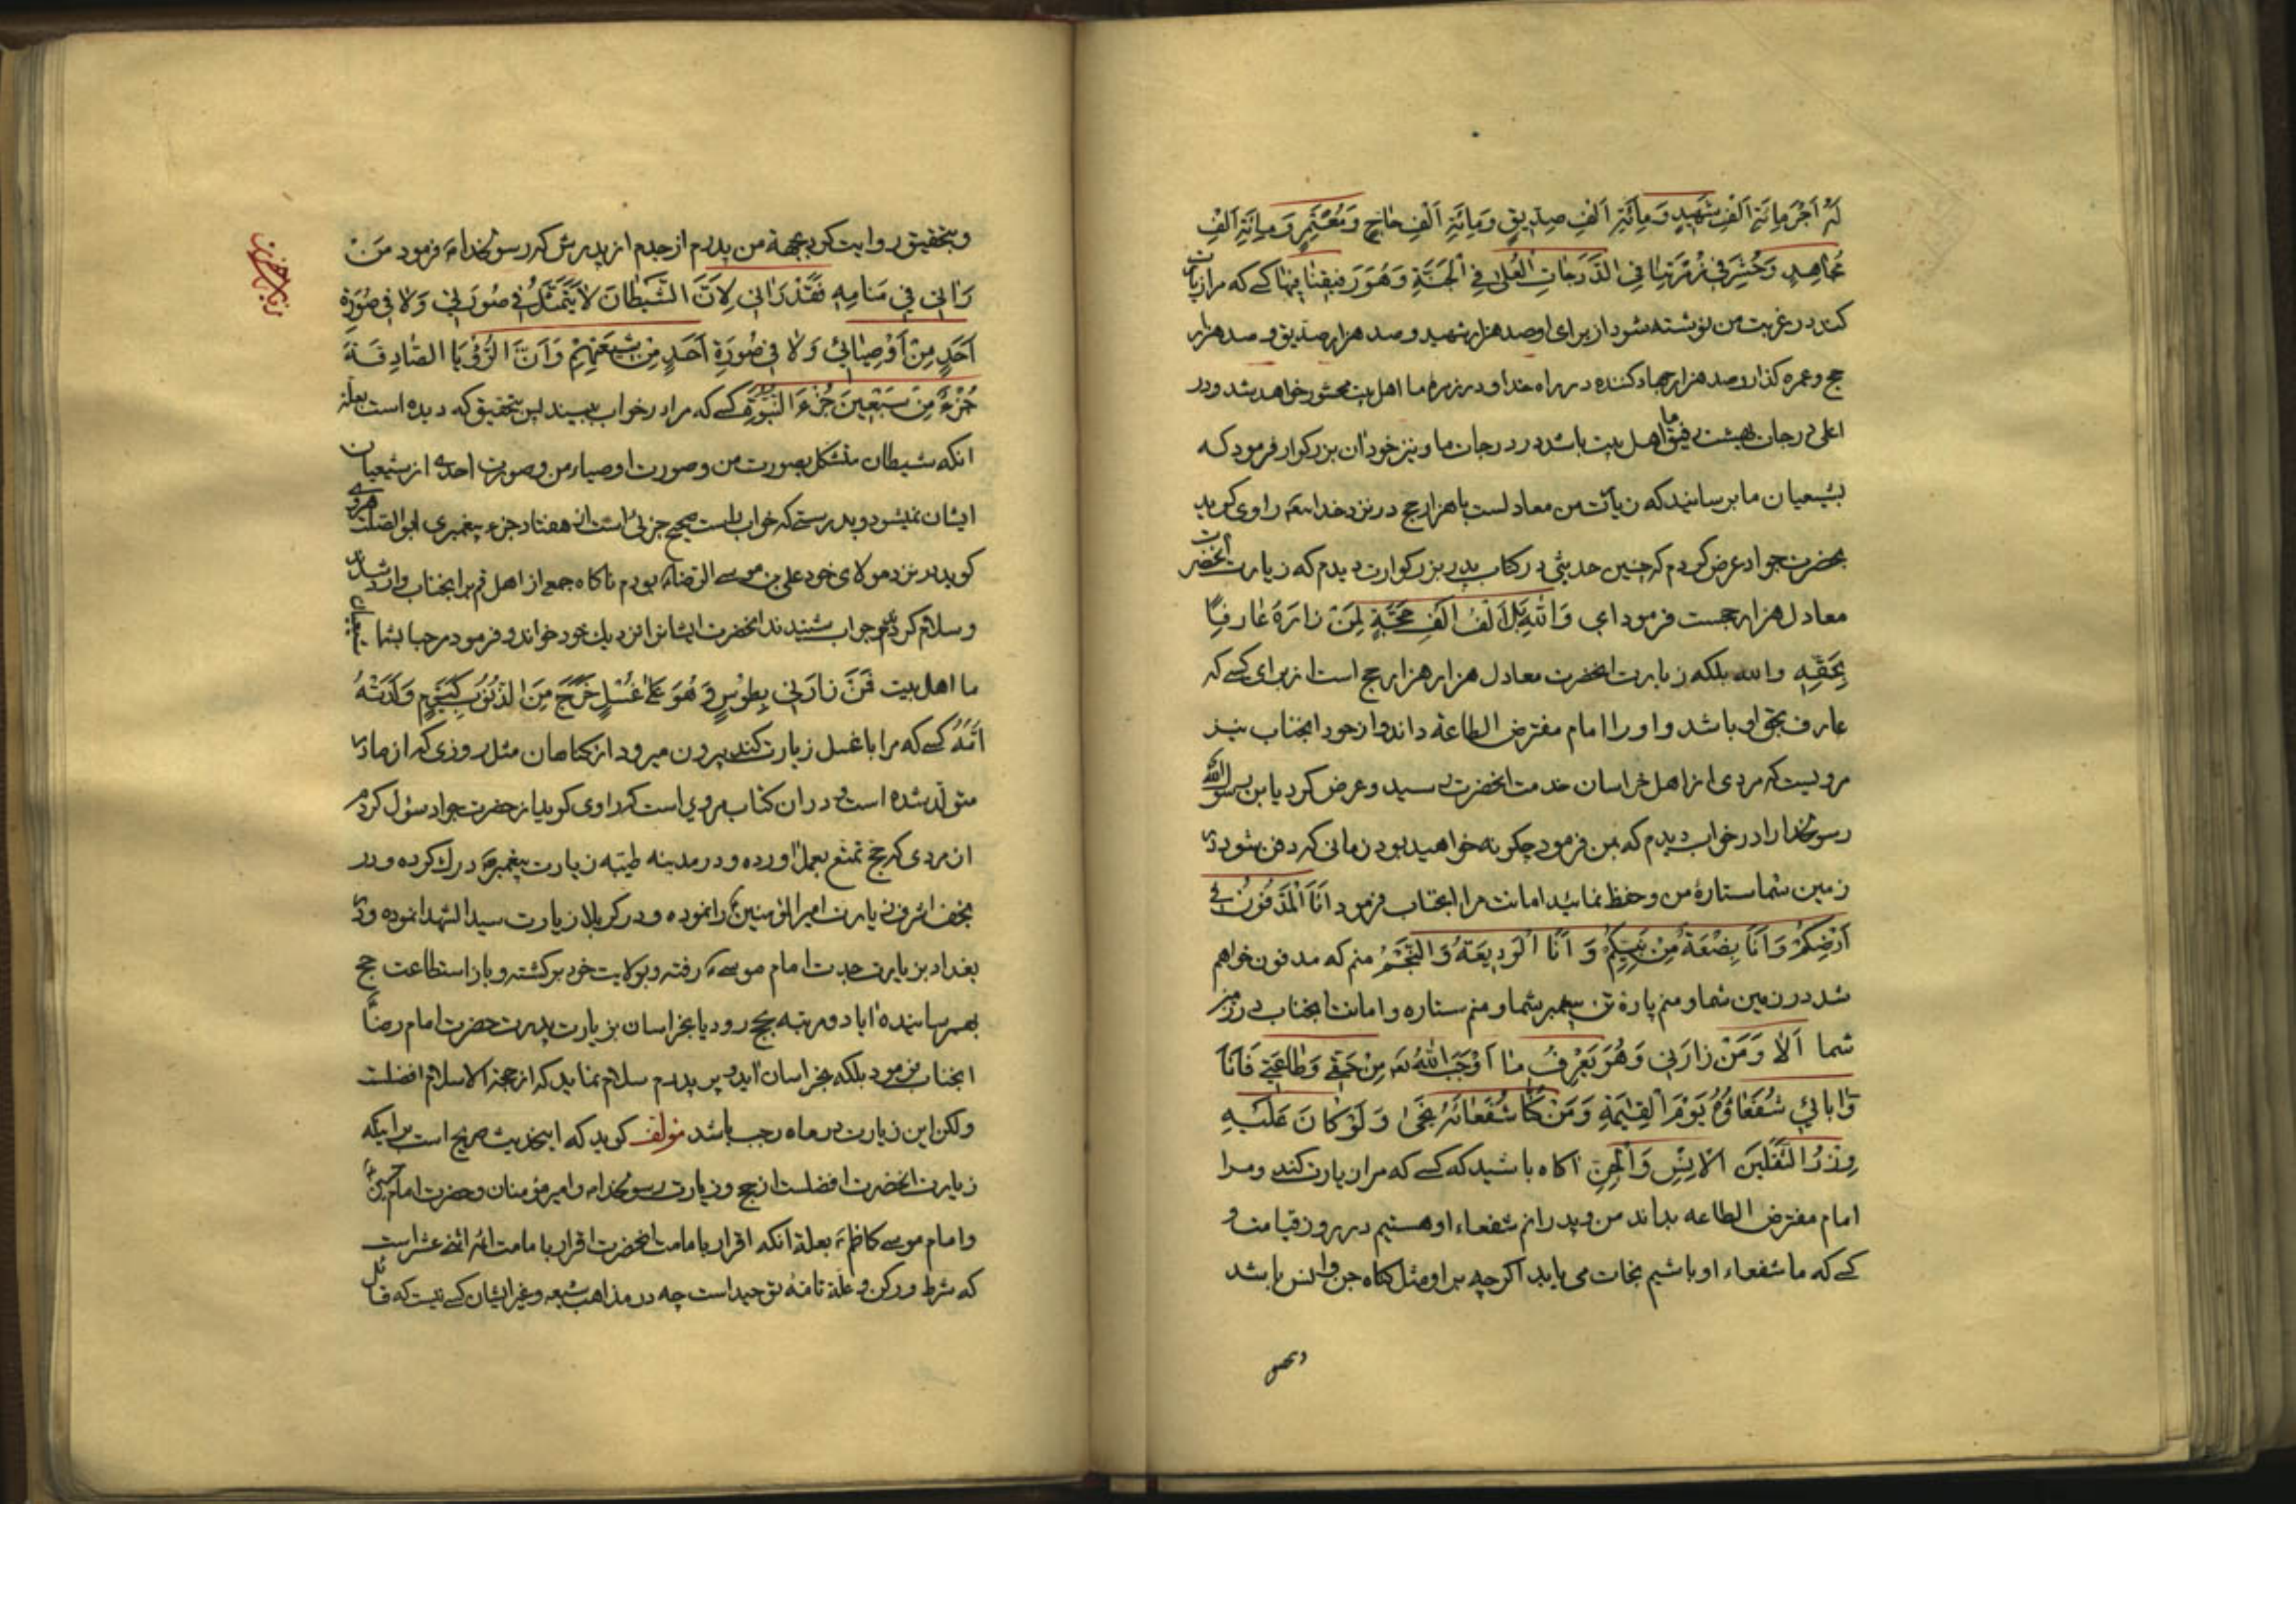 لَهُ اَجْرَ مِائَةِ اَلْفِ شَهِيدٍ وَ مِائَةِ اَلْفِ صِدِّيقٍ وَ مِائَةِ اَلْفِ حَاجٍّ وَ مُعْتَمِرٍ وَ مِائَةِ اَلْفِ
مُجَاهِدٍ وَ حُشِرَ فِي زُمْرَتِنَا فِي الدَّرَجَاتِ الْعُلَىٰ فِي الْجَنَّةِ وَ هُوَ رَفِيقُنَا فِيهَا كسے كه مرا زيارت
كند در غربت من نوشته شود از براى او صد هزار شهيد و صد هزار صديق و صد هزار
حج و عمره كذار و صد هزار جهاد كننده در راه خدا و در زمره ما اهل بيت محشور خواهد شد و در
اعلى درجات بهشت رفيق ما اهل بيت باشد در درجات ما و نيز خود ان بزركوار فرمود كه
بشيعيان ما برسانيد كه زيارت من معادلست با هزار حج در نزد خدايتعه راوى كويد
بحضرت جواد عرض كردم كه چنين حديثى در كتاب پدر بزركوارت ديدم كه زيارت انحضرت
معادل هزار حجست فرمود اي وَاللّٰهِ بَلْ اَلْفُ اَلْفِ حَجَّةٍ لِمَنْ زَارَهُ عَارِفًا
بِحَقِّهِ والله بلكه زيارت انحضرت معادل هزار هزار حج است از براى كسے كه
عارف بحق او باشد و او را امام مفترض الطاعة داند و از خود انجناب نيز
مرويست كه مردى از اهل خراسان خدمت انحضرت رسيد و عرض كرد يا بن رسول الله
رسولخدا را در خواب ديدم كه بمن فرمود چكونه خواهيد بود زمانى كه دفن شود در
زمين شما ستارۀ من و حفظ نمائيد امانت مرا انجناب فرمود اَنَا الْمَدْفُونُ فِي
اَرْضِكُمْ وَ اَنَا بِضْعَةٌ مِنْ نَبِيِّكُمْ وَ اَنَا الْوَدِيعَةُ وَ النَّجْمُ منم كه مدفون خواهم
شد در زمين شما و منم پارۀ تن پيغمبر شما و منم ستاره و امانت انجناب در زمين
شما اَلَا وَ مَنْ زَارَنِي وَ هُوَ يَعْرِفُ مَا اَوْجَبَ اللّٰهُ تعه مِنْ حَقِّي وَ طَاعَتِي فَاَنَا
وَ اٰبَائِي شُفَعَاؤُهُ يَوْمَ الْقِيٰمَةِ وَ مَنْ كُنَّا شُفَعَائَهُ نَجَىٰ وَ لَوْ كَانَ عَلَيْهِ
وِزْرُ الثَّقَلَيْنِ الْاِنْسِ وَ الْجِنِّ اكاه باشيد كه كسے كه مرا زيارت كند و مرا
امام مفترض الطاعه بداند من و پدرانم شفعاء او هستيم در روز قيامت و
كسے كه ما شفعاء او باشيم نجات مى يابد اكرچه بر او مثل كناه جن و انس باشد
و بتحقيق روايت كرد بجهة من پدرم از جدم از پدرش كه رسولخدا ص فرمود مَنْ
رَاٰنِي فِي مَنَامِهِ فَقَدْ رَاٰنِي لِاَنَّ الشَّيْطَانَ لَا يَتَمَثَّلُ فِي صُورَتِي وَ لَا فِي صُورَةِ
اَحَدٍ مِنْ اَوْصِيَائِي وَ لَا فِي صُورَةِ اَحَدٍ مِنْ شِيعَتِهِمْ وَ اَنَّ الرُّؤْيَا الصَّادِقَةَ
جُزْءٌ مِنْ سَبْعِينَ جُزْءَ النُّبُوَّةِ كسے كه مرا در خواب ببيند پس بتحقيق كه ديده است بعلة
انكه شيطان متشكل بصورت من و صورت اوصياء من و صورت احدى از شيعيان
ايشان نميشود و بدرستے كه خواب راست صحيح جزئى است از هفتاد جزء پيغمبرى ابو الصلت هروى
كويد در نزد مولاى خود على بن موسے الرضاء بودم ناكاه جمعے از اهل قم بر انجناب وارد شدند
و سلام كردند جواب شنيدند انحضرت ايشانرا نزديك خود خواند و فرمود مرحبا بشما شيعيان
ما اهل بيت فَمَنْ زَارَنِي بِطُوسٍ وَ هُوَ عَلَىٰ غُسْلٍ خَرَجَ مِنَ الذُّنُوبِ كَيَوْمِ وَلَدَتْهُ
اُمُّهُ كسے كه مرا با غسل زيارت كند بيرون ميرود از كناهان مثل روزى كه از مادر
متولد شده است و در ان كتاب مرويست كه راوى كويد از حضرت جواد سؤال كردم
ان مردى كه حج تمتع بعمل اورده و در مدينه طيبه زيارت پيغمبر ص درك كرده و در
نجف اشرف زيارت امير المؤمنين را نموده و در كربلا زيارت سيد الشهدا نموده و در
بغداد بزيارت جدت امام موسے ع رفته و بولايت خود بركشته و باز استطاعت حج
بهم رسانيده ايا دو مرتبه بحج رود يا بخراسان بزيارت پدرت حضرت امام رضا
انجناب فرمود بلكه بخراسان ايد و بر پدرم سلام نمايد كه از حجة الاسلام افضلست
ولكن اين زيارت در ماه رجب باشد مؤلف كويد كه اينحديث صريح است بر اينكه
زيارت انحضرت افضلست از حج و زيارت رسولخدا و امير مؤمنان و حضرت امام حسين
و امام موسے كاظم ع بعلة انكه اقرار بامامت انحضرت اقرار بامامت ائمه اثنى عشر است
كه شرط و ركن و علة تامۀ توحيد است چه در مذاهب شيعه و غير ايشان كسے نيست كه قائل